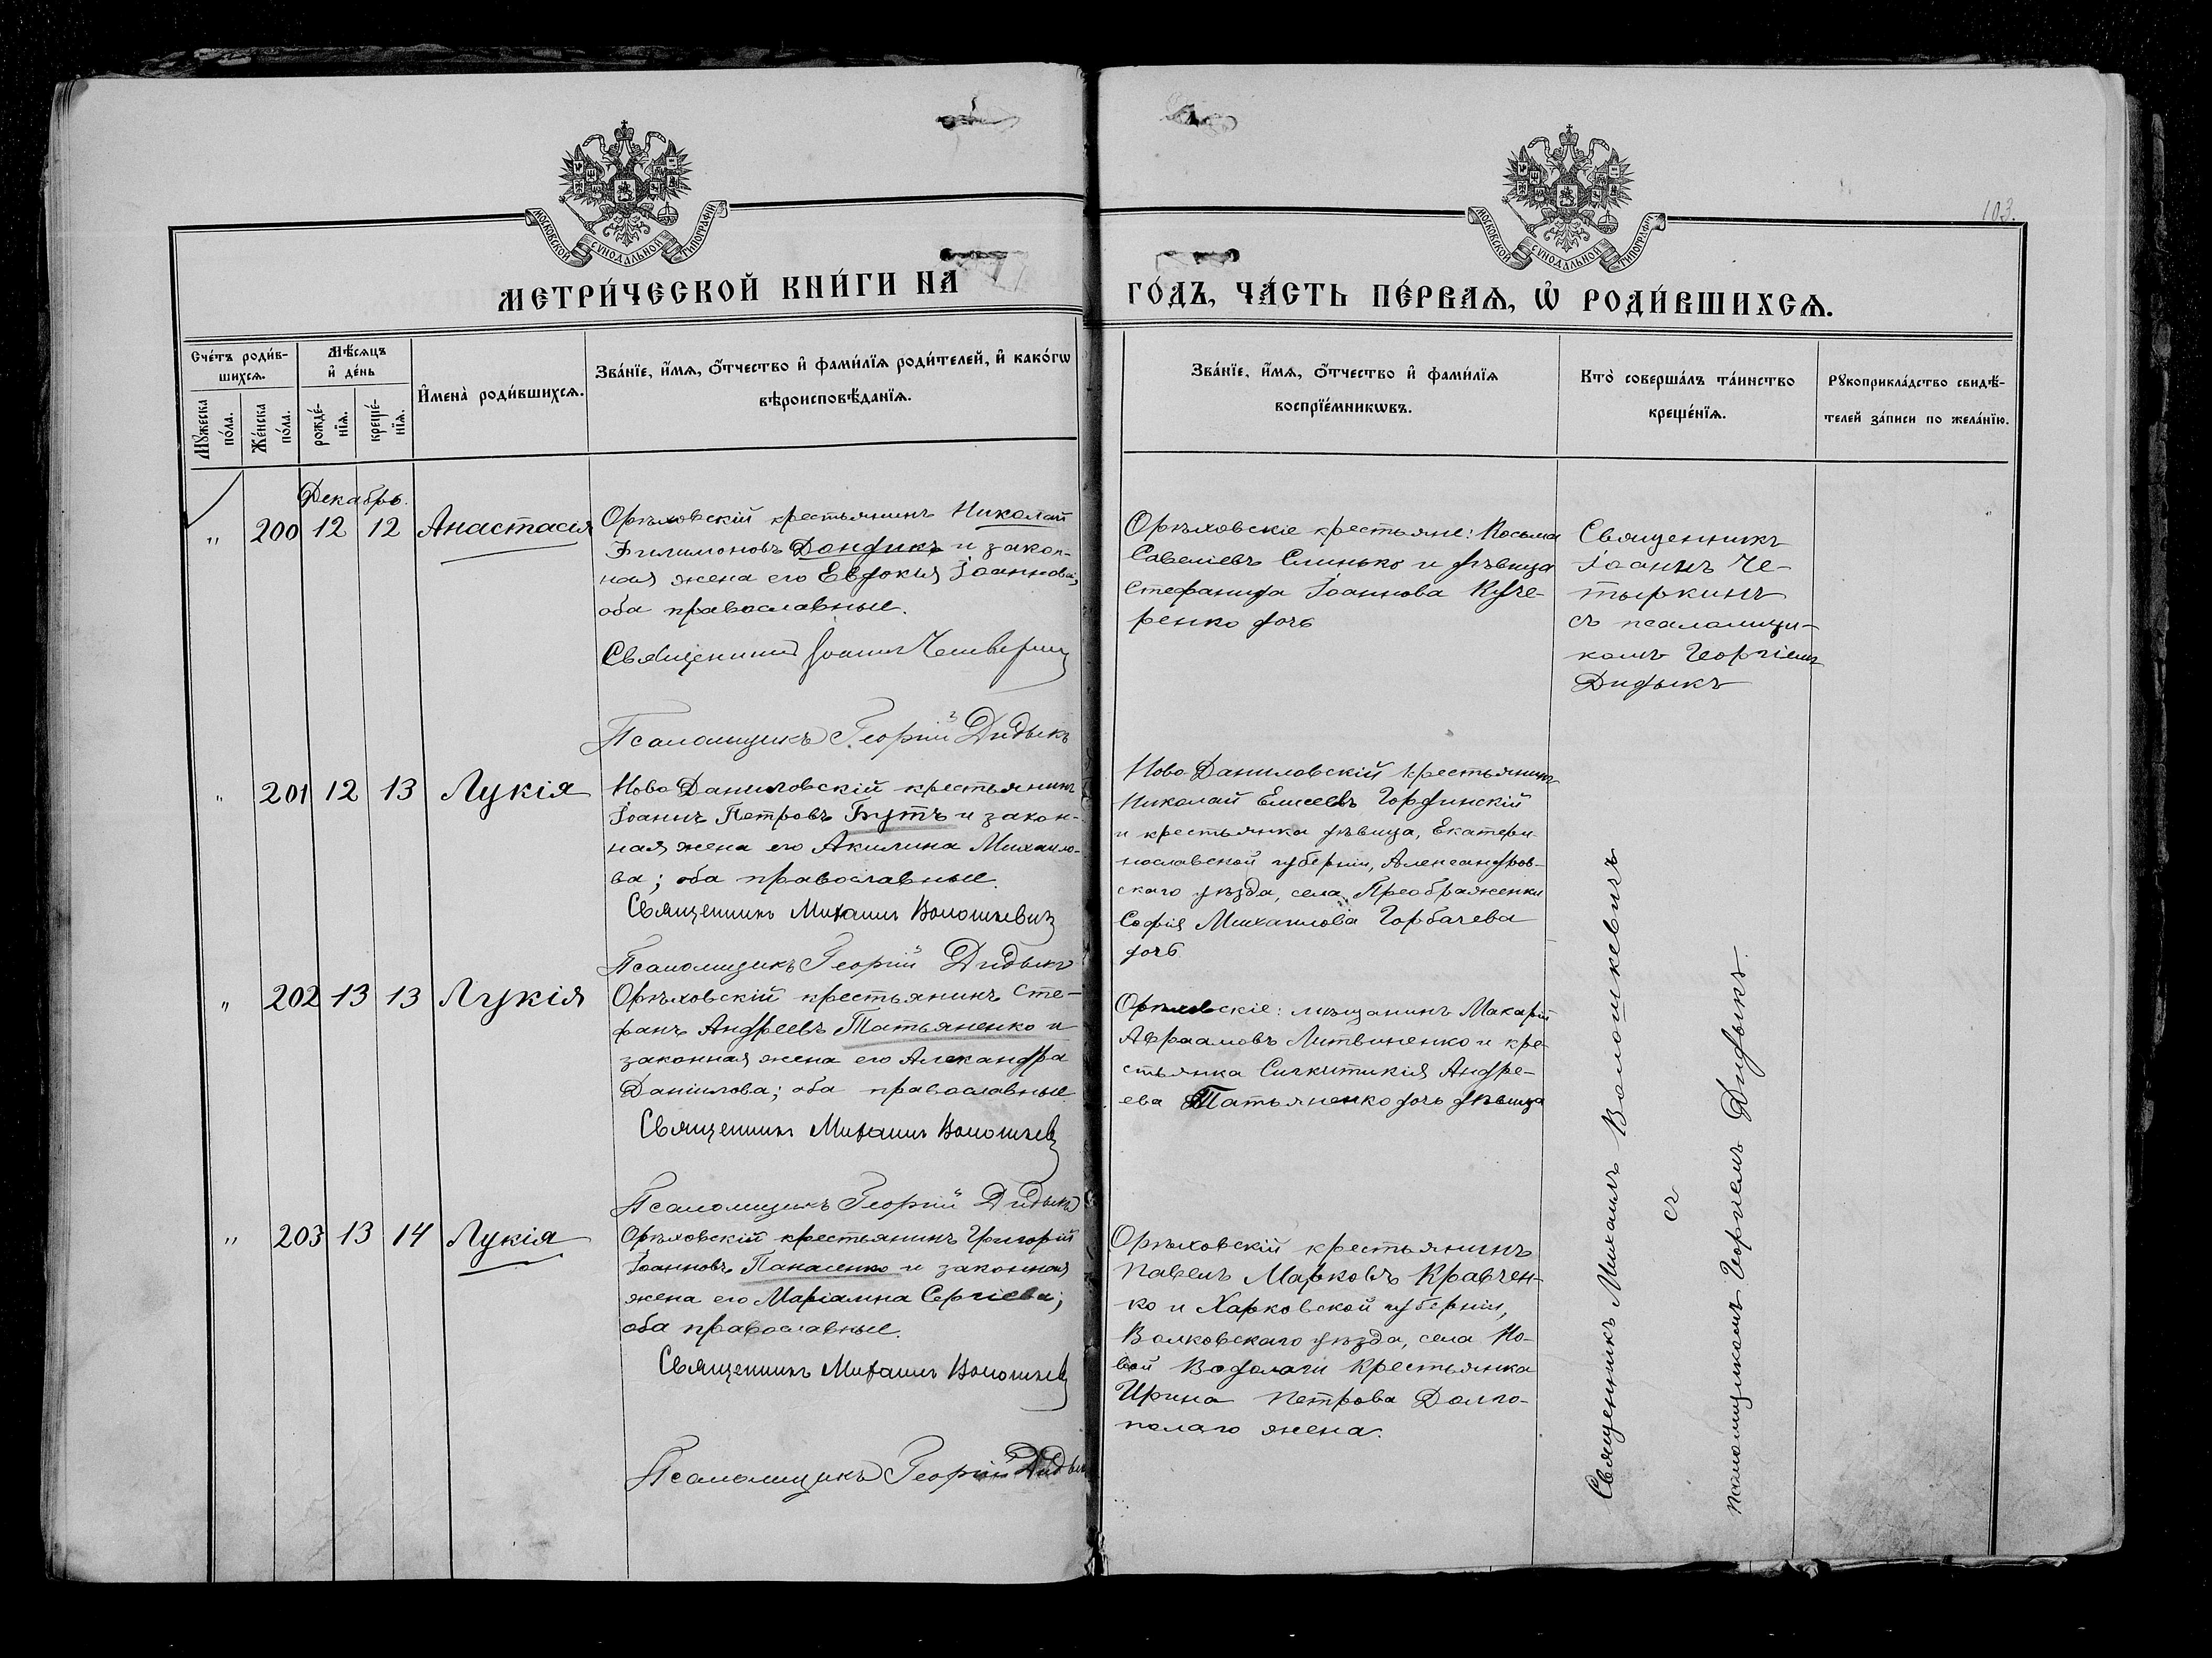 103.
МОСКОВСКОЙ СѴНОДАЛЬНОЙ ТИПОГРАФІИ
МОСКОВСКОЙ СѴНОДАЛЬНОЙ ТИПОГРАФІИ
МЕТРИ́ЧЕСКОЙ КНИ́ГИ НА
ГО́ДЪ, ЧА́СТЬ ПЕ́РВАѦ, Ѡ РОДИ́ВШИХСѦ.
Сче́тъ роди́в-
шихсѧ.
Мꙋжеска по́ла.
Же́нска по́ла.
Мѣ́сѧцъ
и҆ де́нь
рожде́-
нїѧ.
креще́-
нїѧ.
И҆мена̀ роди́вшихсѧ.
Зва́нїе, и҆́мѧ, ѻ҆́тчество и҆ фами́лїѧ роди́телей, и҆ како́гѡ
вѣроисповѣ́данїѧ.
Зва́нїе, и҆́мѧ, ѻ҆́тчество и҆ фами́лїѧ
воспрїе́мникѡвъ.
Кто̀ соверша́лъ та́инство
креще́нїѧ.
Рꙋкоприкла́дство свидѣ́-
телей за́писи по жела́нїю.
Декабрь.
" 200 12 12 Анастасія
Орѣховскій крестьянинъ Николай
Филимоновъ Дондикъ и закон-
ная жена его Евдокія Іоаннова;
оба православные.
Священникъ Іоаннъ
Псаломщикъ Георгій Дидыкъ
Орѣховскіе крестьяне: Косьма
Савеліевъ Слинько и дѣвица
Стефанида Іоаннова Куче-
ренко дочь
Священникъ
Іоаннъ Че-
тыркинъ
съ псаломщи-
комъ Георгіемъ
Дидыкъ
" 201 12 13 Лукія
Ново Даниловскій крестьянинъ
Іоаннъ Петровъ Бутъ и закон-
ная жена его Акилина Михаило-
ва; оба православные.
Священникъ Михаилъ Волошкевичъ
Псаломщикъ Георгій Дидыкъ
Ново-Даниловскій крестьянинъ
Николай Елисеевъ Гордински
и крестьянка дѣвица, Екатери-
нославской губерніи, Александров-
скаго уѣзда, села Преображенки
Софія Михаилова Горбачева
дочь
" 202 13 13 Лукія
Орѣховскій крестьянинъ Сте-
фанъ Андреевъ Татьяненко и
законная жена его Александра
Даніилова; оба православные.
Священникъ Михаилъ Волошкев
Псаломщикъ Георгій Дидыкъ
Орѣховскіе: мѣщанинъ Макарій
Авраамовъ Литвиненко и кре-
стьянка Синклитикія Андре-
ева Татьяненко дочь дѣвица
" 203 13 14 Лукія
Орѣховскій крестьянинъ Григорій
Іоанновъ Панасенко и законная
жена его Маріамна Сергіева;
оба православные.
Священникъ Михаилъ Волошкев
Псаломщикъ Георгій Дидык
Орѣховскій крестьянинъ
Павелъ Марковъ Кравчен-
ко и Харковской губерніи,
Валковскаго уѣзда, села Но-
вой Водолаги крестьянка
Ирина Петрова Долго-
полаго жена.
Священникъ Михаилъ Волошкевичъ
съ
псаломщикомъ Георгіемъ Дидыкъ.